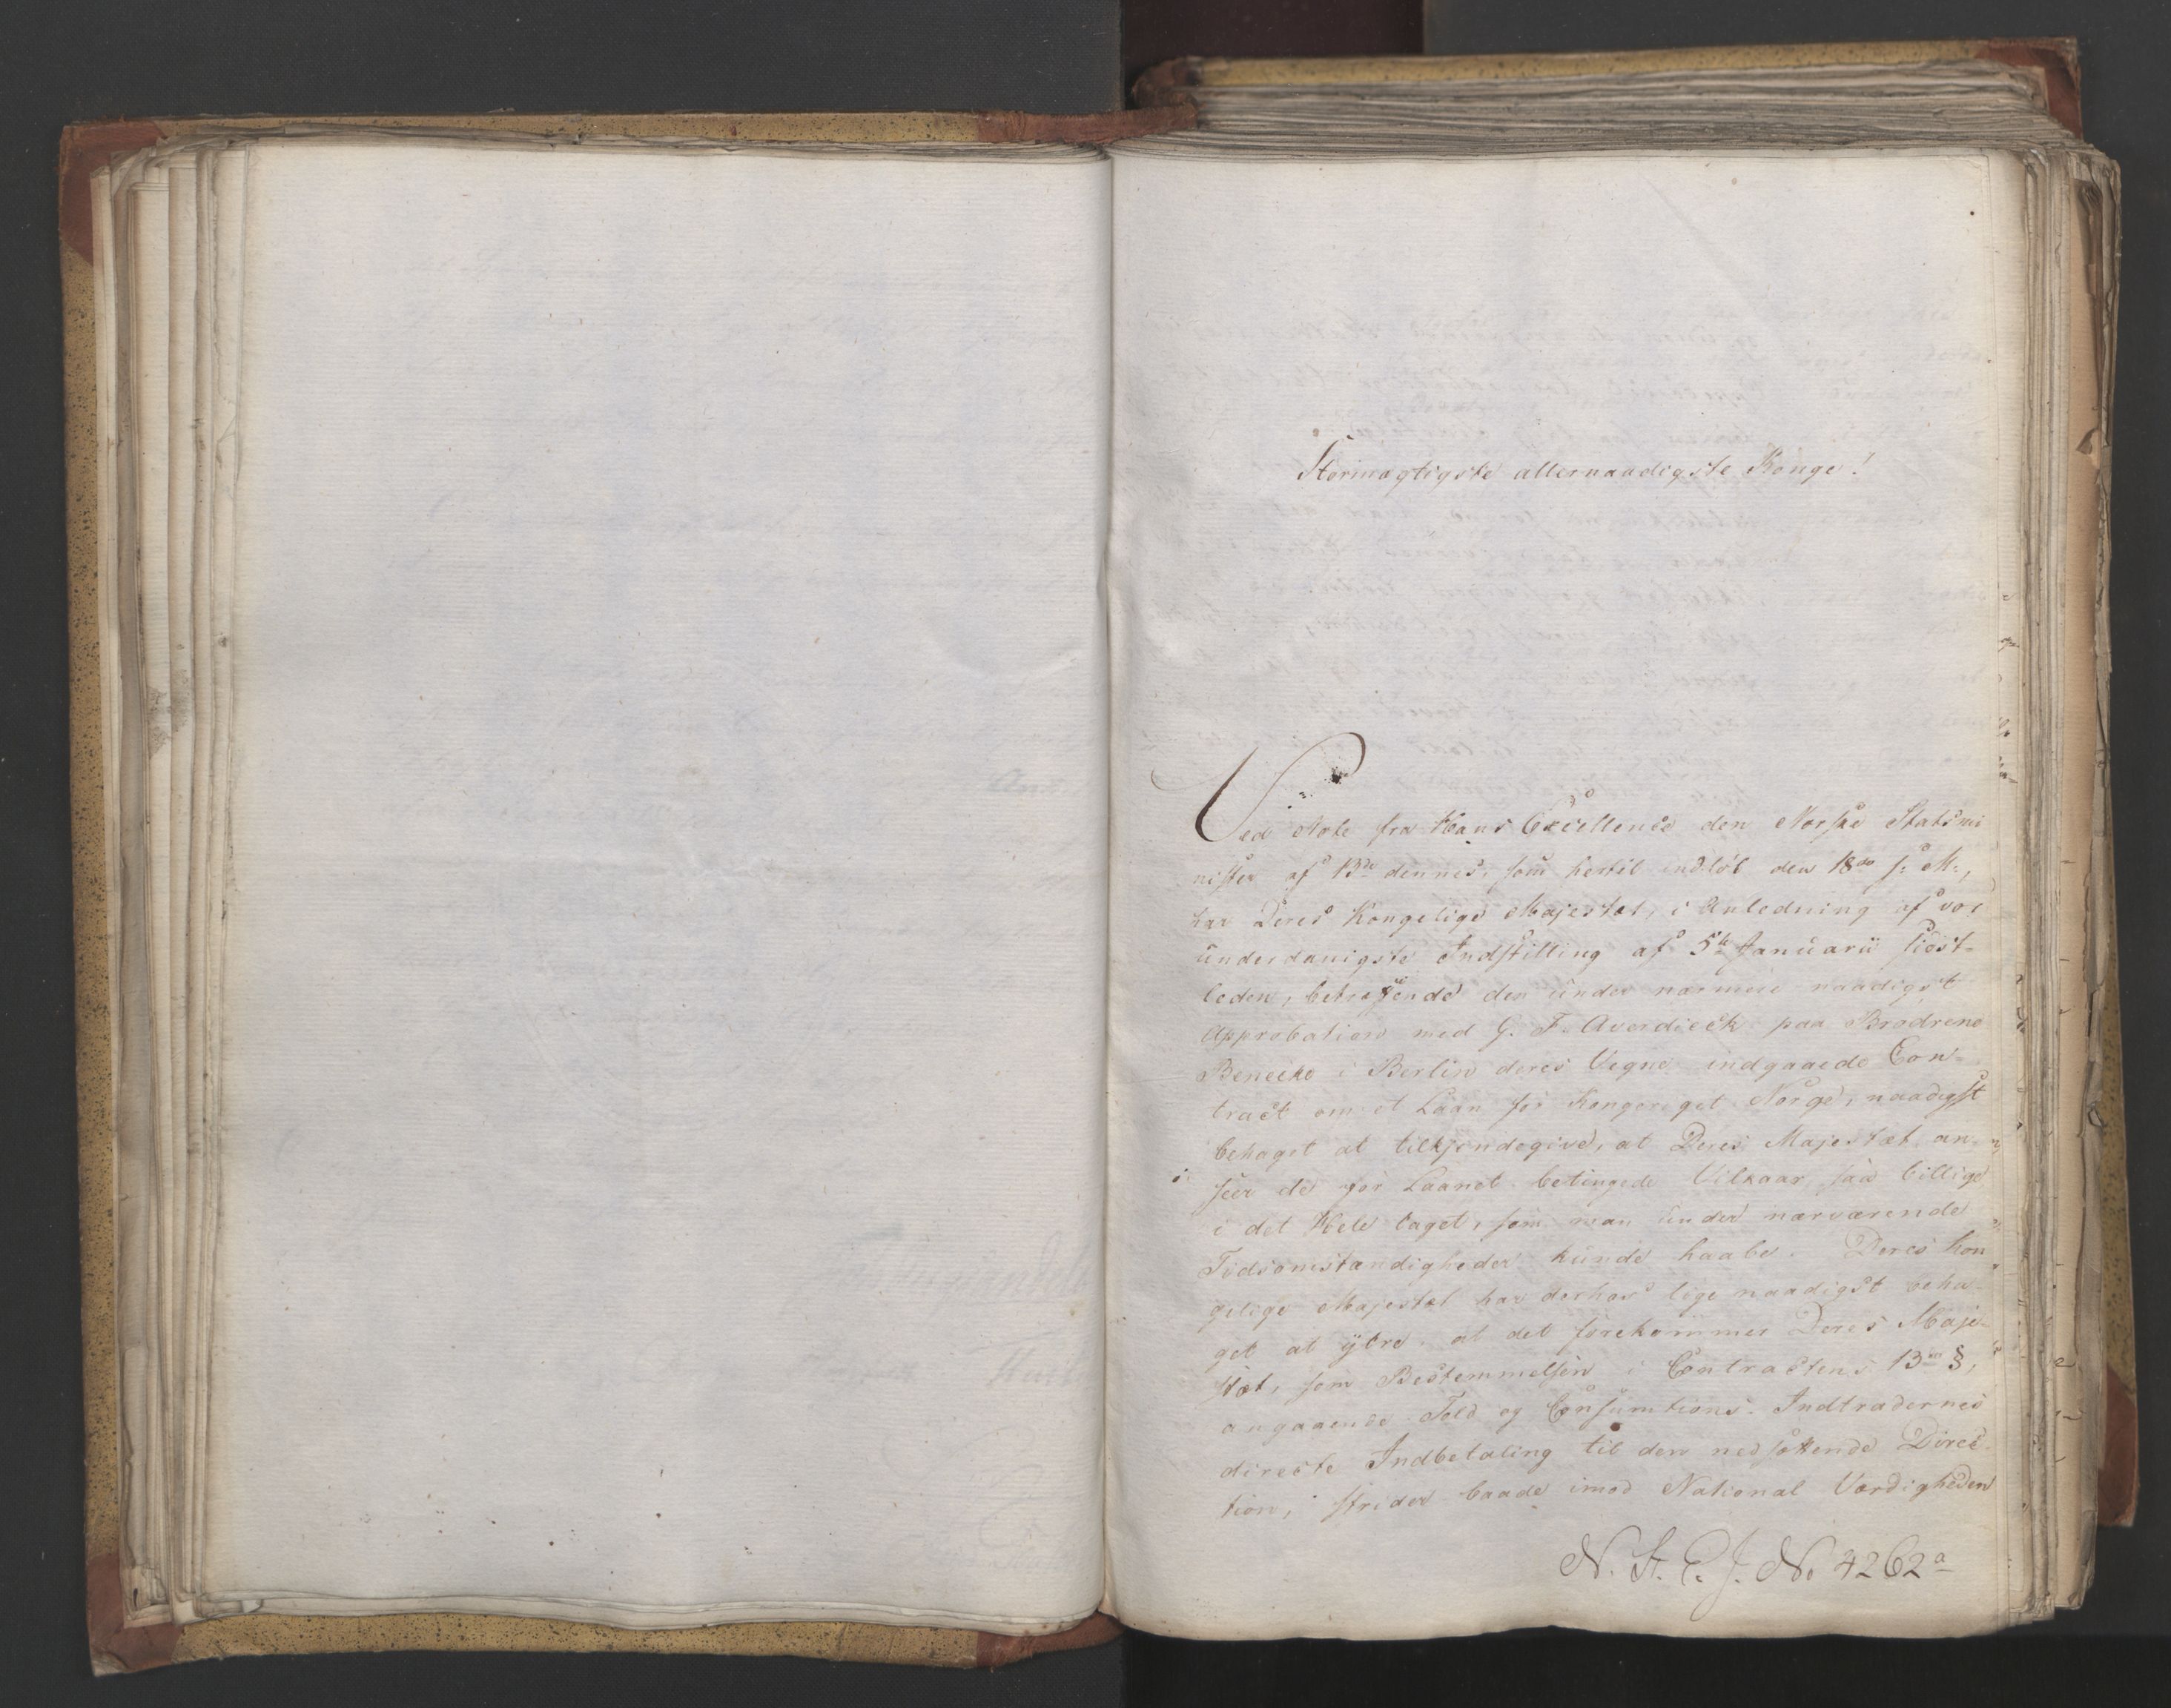 Stormægtigste allernaadigste Konge!
Ved Note fra Hans Excellence den Norske Statsmi
nister af 13de dennes, som hertil indløb den 18de s: M:,
har Deres Kongelige Majestæt, i Anledning af vor
underdanigste Indstilling af 5te Januarii sidst-
leden, betreffende den under nærmere naadigst
Approbation med G. F. Averdieck paa Brødrene
Benecke i Berlin deres Vegne indgaaede Con-
tract om et Laan for Kongeriget Norge, naadigst
behaget at tilkjendegive, at Deres Majestæt an-
seer de for Laanet betingede Vilkaar saa billige
i det Hele taget, som man under nærværende
Tidsomstændigheder kunde haabe. Deres Kon
gelige Majestæt har derhos lige naadigst beha-
get at ytre, at det forekommer Deres Maje-
stæt, som Bestemmelsen i Contractens 13de §,
angaaende Told og Consumtions-Indtradernes
directe Indbetaling til den nedsættende Direc-
tion, strider baade imod National Værdigheden
N. St. E. J. No 4262a